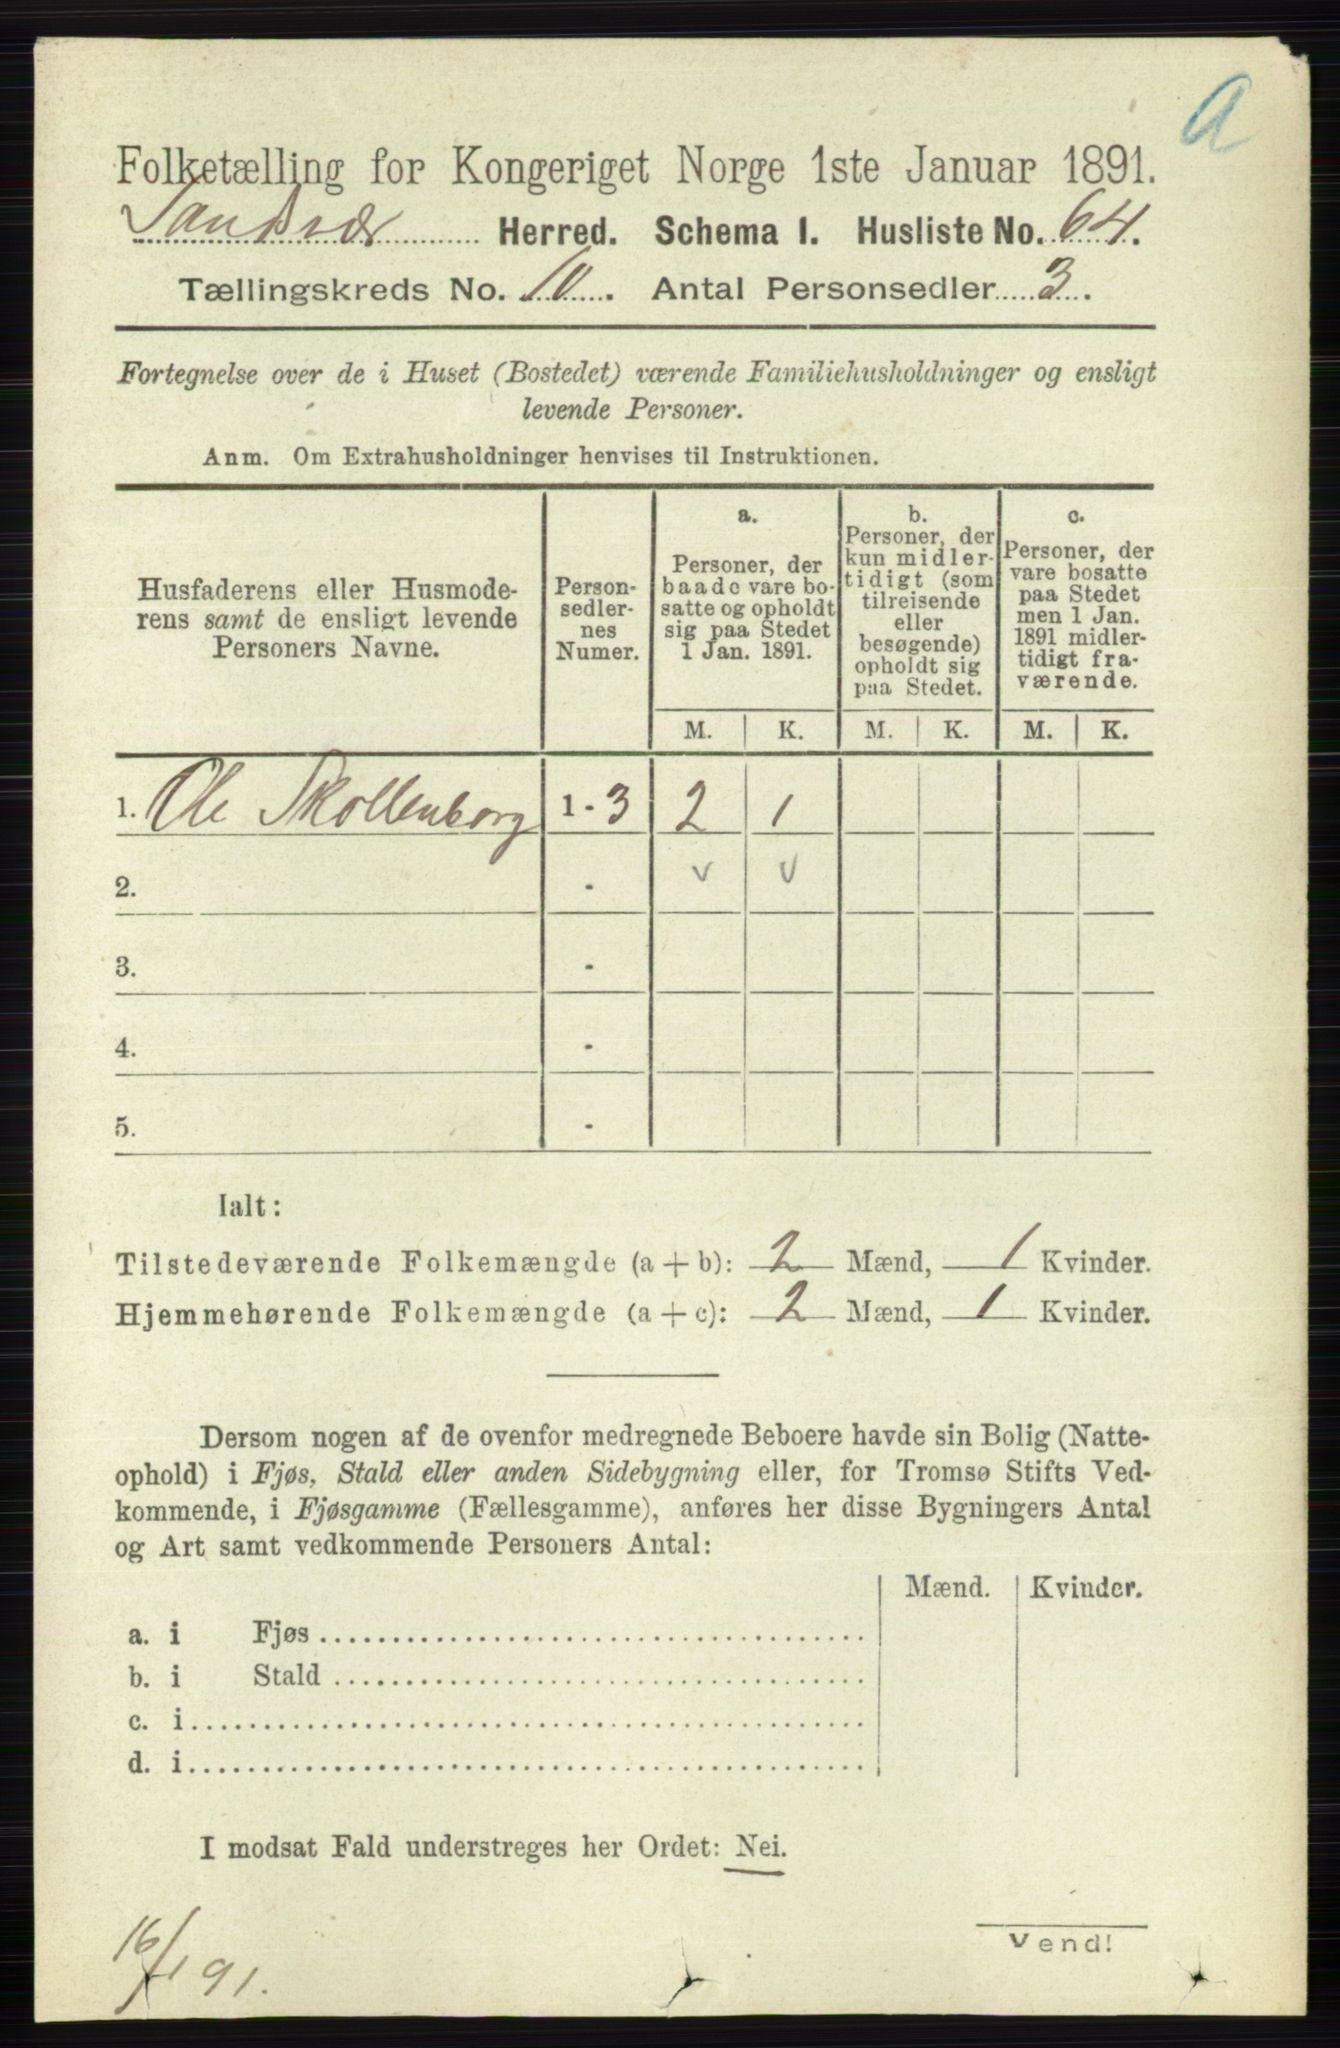 a
Folketælling for Kongeriget Norge 1ste Januar 1891.
Sandsvær Herred. Schema I. Husliste No. 64.
Tællingskreds No. 10. Antal Personsedler 3.
Fortegnelse over de i Huset (Bostedet) værende Familiehusholdninger og ensligt
levende Personer.
Anm. Om Extrahusholdninger henvises til Instruktionen.
Husfaderens eller Husmode-
rens samt de ensligt levende
Personers Navne.
Person-
sedler-
nes
Numer.
a.
Personer, der
baade vare bo-
satte og opholdt
sig paa Stedet
1 Jan. 1891.
b.
Personer, der
kun midler-
tidigt (som
tilreisende
eller
besøgende)
opholdt sig
paa Stedet.
c.
Personer, der
vare bosatte
paa Stedet
men 1 Jan.
1891 midler-
tidigt fra-
værende.
M. K. M. K. M. K.
1. Ole Skollenborg 1 - 3 2 1
2. - v v
3. -
4. -
5. -
Ialt:
Tilstedeværende Folkemængde (a + b): 2 Mænd, 1 Kvinder.
Hjemmehørende Folkemængde (a + c): 2 Mænd, 1 Kvinder.
Dersom nogen af de ovenfor medregnede Beboere havde sin Bolig (Natte-
ophold) i Fjøs, Stald eller anden Sidebygning eller, for Tromsø Stifts Ved-
kommende, i Fjøsgamme (Fællesgamme), anføres her disse Bygningers Antal
og Art samt vedkommende Personers Antal:
Mænd. Kvinder.
a. i Fjøs
b. i Stald
c. i
d. i
I modsat Fald understreges her Ordet: Nei.
16/1 91.
Vend!